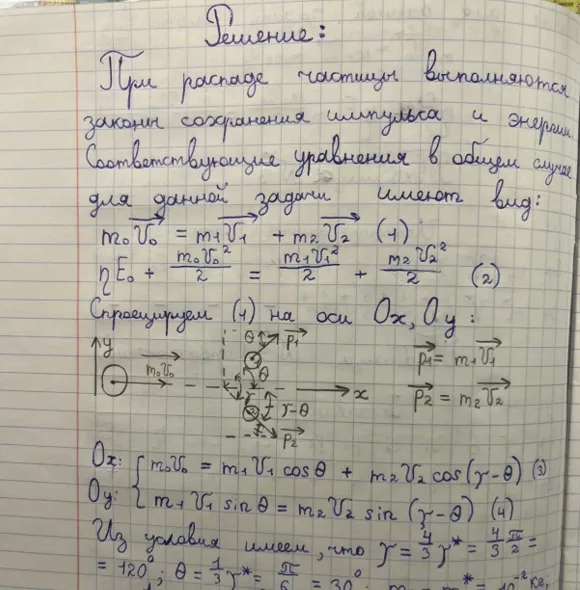 Решение:
При распаде частицы выполняются
законы сохранения импульса и энергии.
Соответствующие уравнения в общем случае
для данной задачи имеют вид:
m₀V₀ = m₁V₁ + m₂V₂ (1)
ηE₀ + m₀V₀²/2 = m₁V₁²/2 + m₂V₂²/2 (2)
Спроецируем (1) на оси Ox, Oy:
y θ p₁ p₁ = m₁V₁
m₀V₀ θ γ x
γ-θ p₂ = m₂V₂
p₂
Ox: { m₀V₀ = m₁V₁ cosθ + m₂V₂ cos(γ-θ) (3)
Oy: { m₁V₁ sinθ = m₂V₂ sin (γ-θ) (4)
Из условия имеем, что γ = 4/3 γ* = 4/3 π/2 =
= 120°; θ = 1/3 γ* = π/6 = 30°;